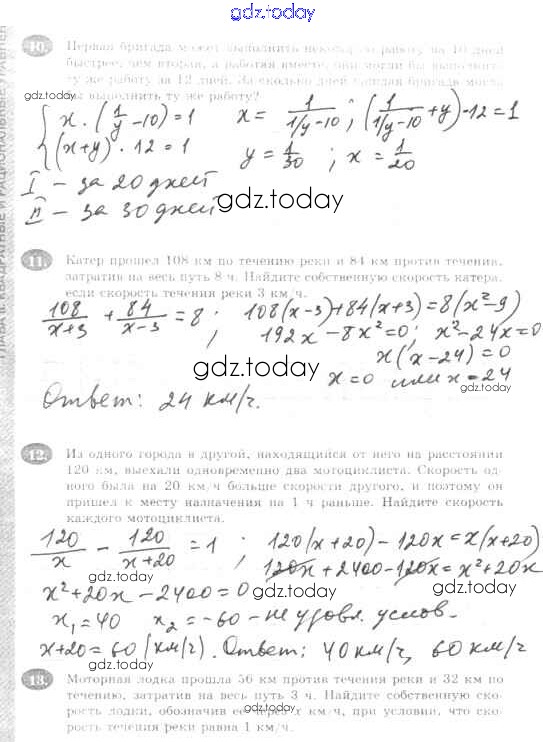 gdz.today
ГЛАВА II. КВАДРАТНЫЕ И РАЦИОНАЛЬНЫЕ УРАВНЕНИЯ
10. Первая бригада может выполнить некоторую работу на 10 дней
быстрее, чем вторая, а работая вместе, они могли бы выполнить
ту же работу за 12 дней. За сколько дней каждая бригада могла
бы выполнить ту же работу?
gdz.today
{ x · (1/y - 10) = 1    x = 1/(1/y - 10) ; (1/(1/y - 10) + y) · 12 = 1
(x + y) · 12 = 1    y = 1/30 ; x = 1/20
I – за 20 дней
II – за 30 дней
gdz.today
11. Катер прошел 108 км по течению реки и 84 км против течения,
затратив на весь путь 8 ч. Найдите собственную скорость катера,
если скорость течения реки 3 км/ч.
108/(x+3) + 84/(x-3) = 8 ; 108(x-3) + 84(x+3) = 8(x² - 9)
192x - 8x² = 0 ; x² - 24x = 0
x(x - 24) = 0
gdz.today
x = 0 или x = 24
Ответ: 24 км/ч.
12. Из одного города в другой, находящийся от него на расстоянии
120 км, выехали одновременно два мотоциклиста. Скорость од-
ного была на 20 км/ч больше скорости другого, и поэтому он
пришел к месту назначения на 1 ч раньше. Найдите скорость
каждого мотоциклиста.
120/x - 120/(x+20) = 1 ; 120(x+20) - 120x = x(x+20)
gdz.today 120x + 2400 - 120x = x² + 20x
gdz.today
x² + 20x - 2400 = 0
x₁ = 40    x₂ = -60 - не удовл. услов.
x + 20 = 60 (км/ч). Ответ: 40 км/ч, 60 км/ч
gdz.today
13. Моторная лодка прошла 56 км против течения реки и 32 км по
течению, затратив на весь путь 3 ч. Найдите собственную ско-
рость лодки, обозначив её через x км/ч, при условии, что ско-
gdz.today
рость течения реки равна 1 км/ч.